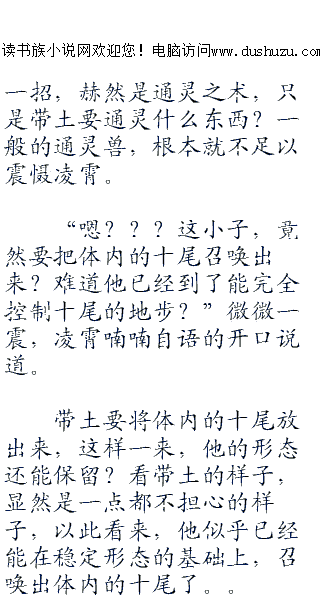 读书族小说网欢迎您！电脑访问www.dushuzu.com
一招，赫然是通灵之术，只
是带土要通灵什么东西？一
般的通灵兽，根本就不足以
震慑凌霄。
“嗯？？？这小子，竟
然要把体内的十尾召唤出
来？难道他已经到了能完全
控制十尾的地步？”微微一
震，凌霄喃喃自语的开口说
道。
带土要将体内的十尾放
出来，这样一来，他的形态
还能保留？看带土的样子，
显然是一点都不担心的样
子，以此看来，他似乎已经
能在稳定形态的基础上，召
唤出体内的十尾了。。